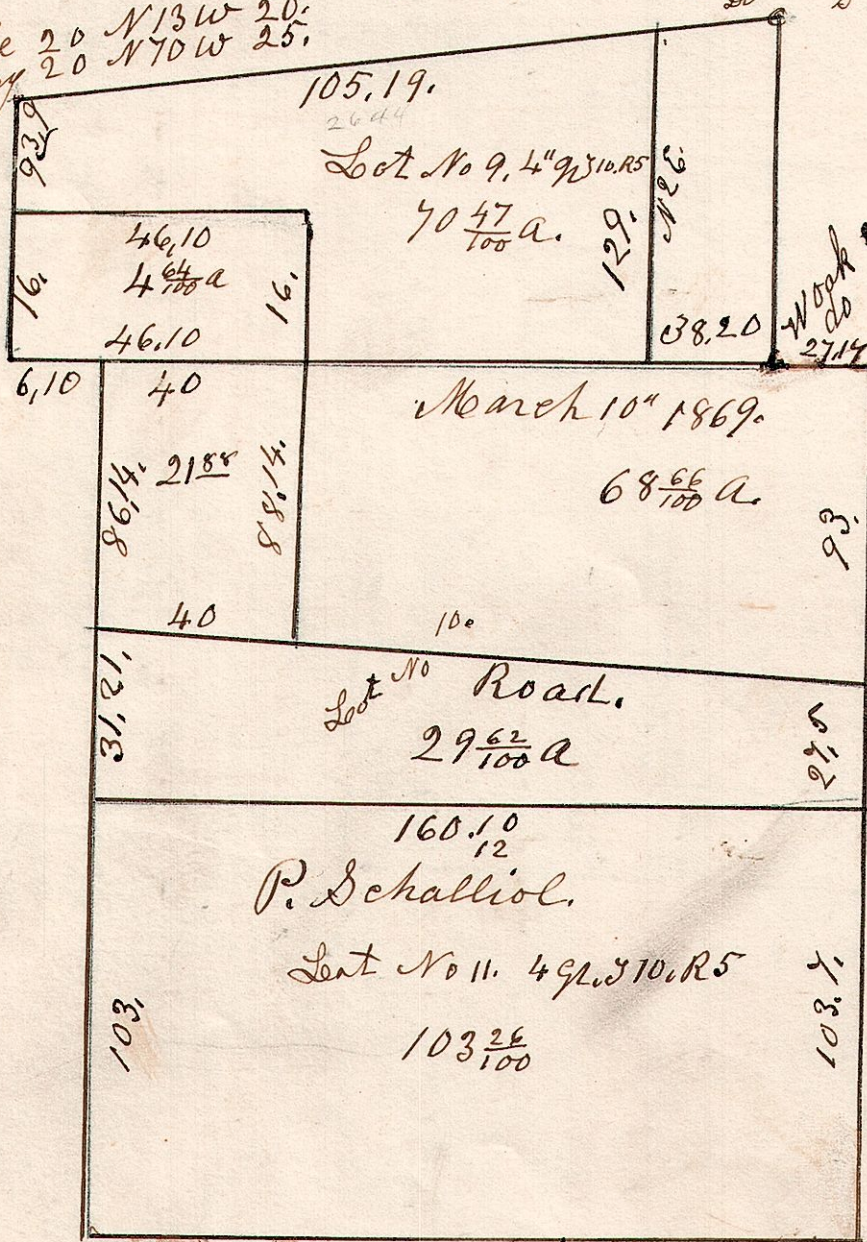 20 N13W 20.
20 N70W 25.
105,19.
2644
93,9
Lot No 9, 4" qr T10. R5
70 47/100 a.
129.
N2E.
46,10
4 64/100 a
16.
16.
46.10
38,20
W oak
do
27,14
6,10
40
March 10" 1869.
21 88
86,14.
88,14.
68 66/100 a.
93.
40
10.
31,21,
Lot No Road.
29 62/100 a
27,5
160.10
12
P. Schalliol.
Lot No 11. 4 qr. T10, R5
103,
103.7.
103 26/100